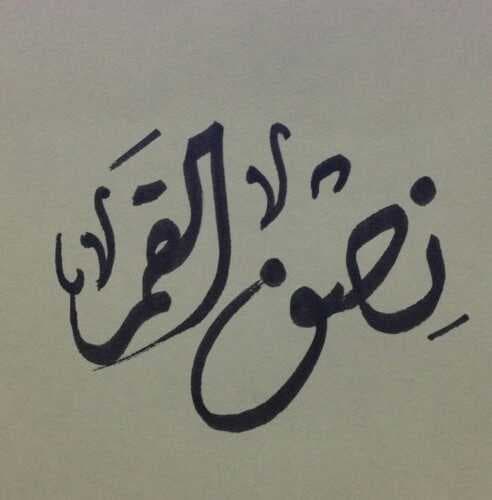 نِصْف القَمَر